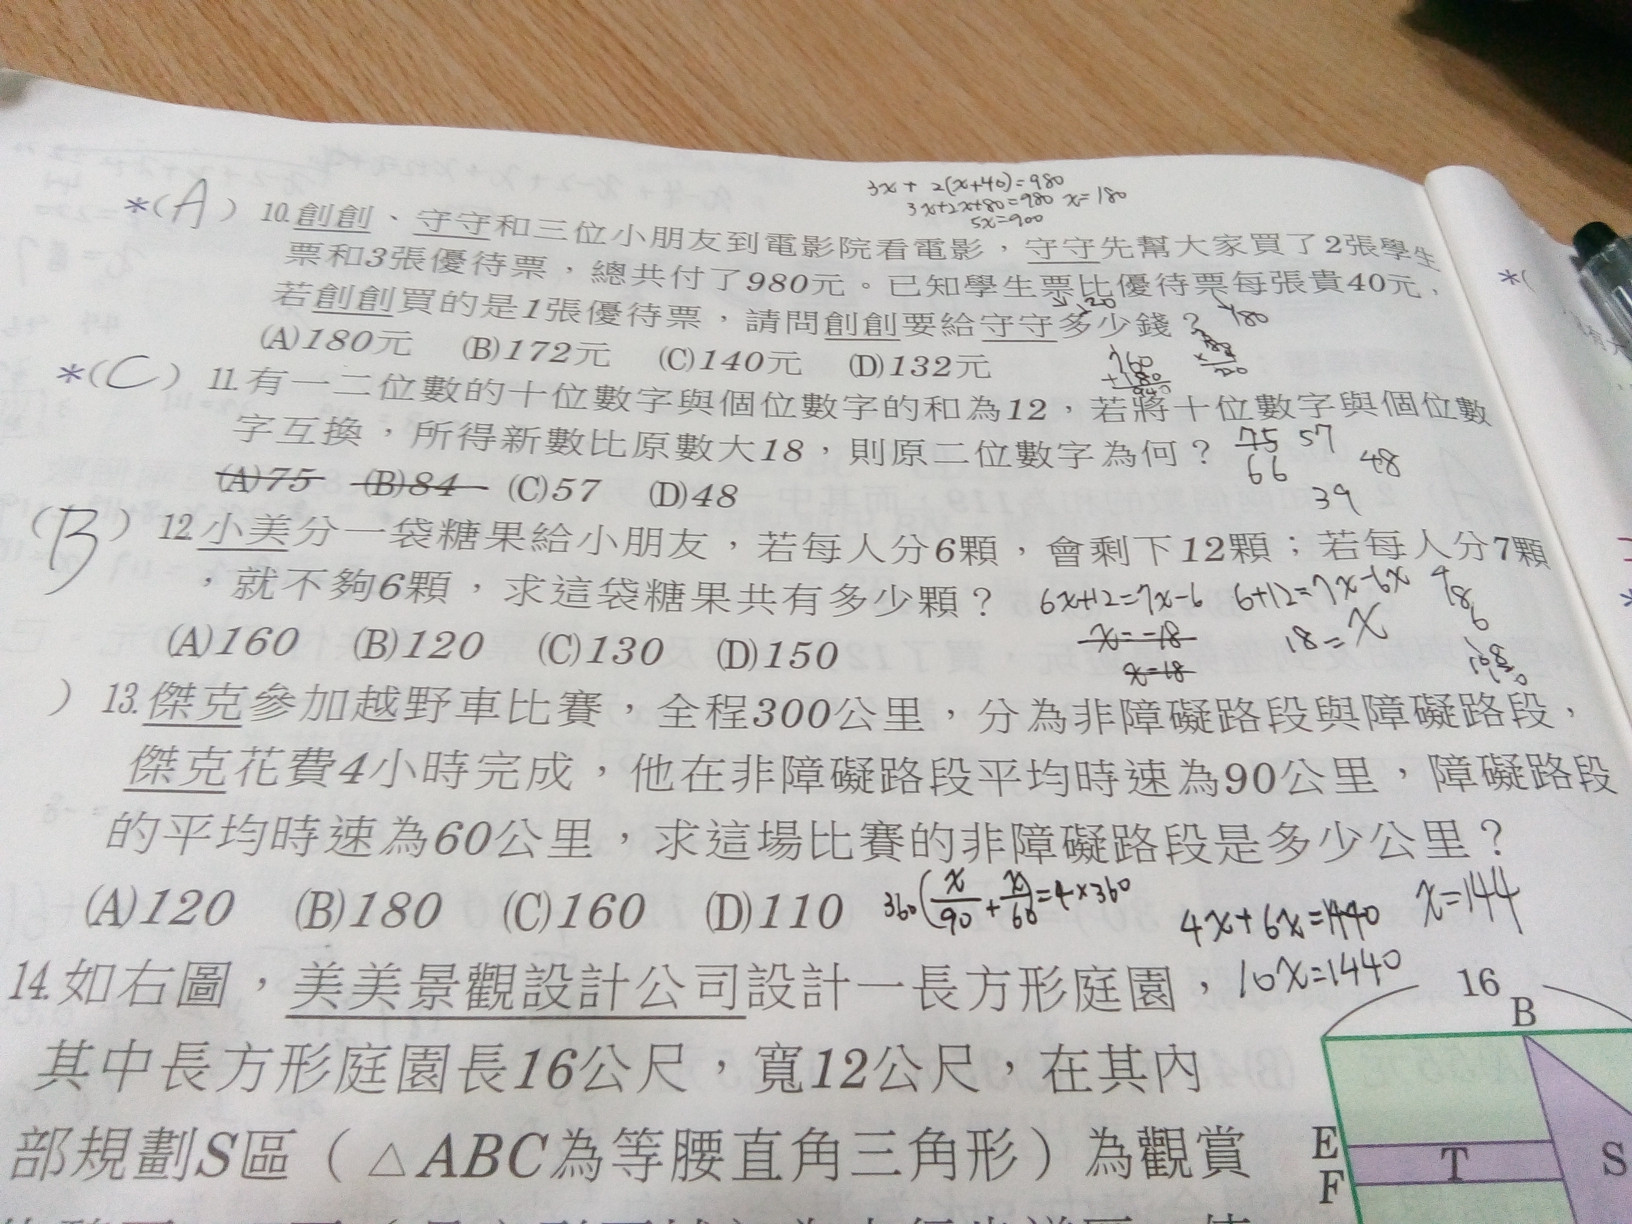 3x + 2(x+40)=980
3x+2x+80=980 x=180
5x=900
*(A) 10.創創、守守和三位小朋友到電影院看電影，守守先幫大家買了2張學生
票和3張優待票，總共付了980元。已知學生票比優待票每張貴40元，
若創創買的是1張優待票，請問創創要給守守多少錢？ 180
(A)180元 (B)172元 (C)140元 (D)132元
*(C) 11.有一二位數的十位數字與個位數字的和為12，若將十位數字與個位數
字互換，所得新數比原數大18，則原二位數字為何？ 75 57
66 48
39
(A)75 (B)84 (C)57 (D)48
(B) 12.小美分一袋糖果給小朋友，若每人分6顆，會剩下12顆；若每人分7顆
，就不夠6顆，求這袋糖果共有多少顆？ 6x+12=7x-6 6+12=7x-6x
x=-18 18=x
x=18
(A)160 (B)120 (C)130 (D)150
) 13.傑克參加越野車比賽，全程300公里，分為非障礙路段與障礙路段，
傑克花費4小時完成，他在非障礙路段平均時速為90公里，障礙路段
的平均時速為60公里，求這場比賽的非障礙路段是多少公里？
(A)120 (B)180 (C)160 (D)110 360(x/90+x/60)=4×360
4x+6x=1440 x=144
10x=1440
14.如右圖，美美景觀設計公司設計一長方形庭園，
其中長方形庭園長16公尺，寬12公尺，在其內
部規劃S區（△ABC為等腰直角三角形）為觀賞
16
B
E
T
S
F